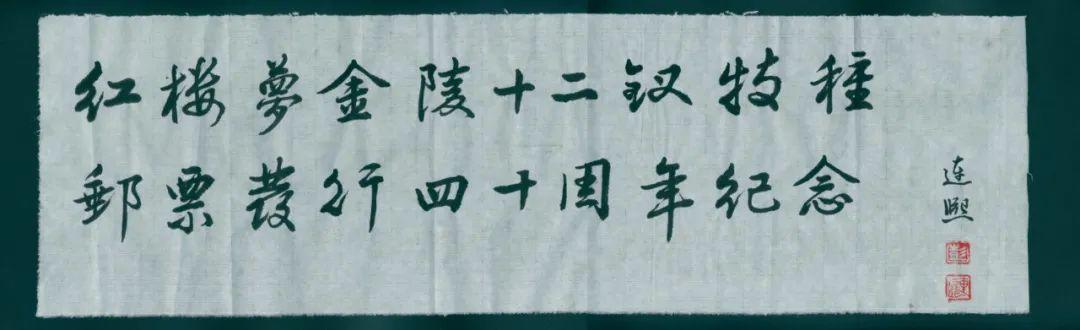 红楼夢金陵十二钗特种
郵票發行四十周年纪念
连熙